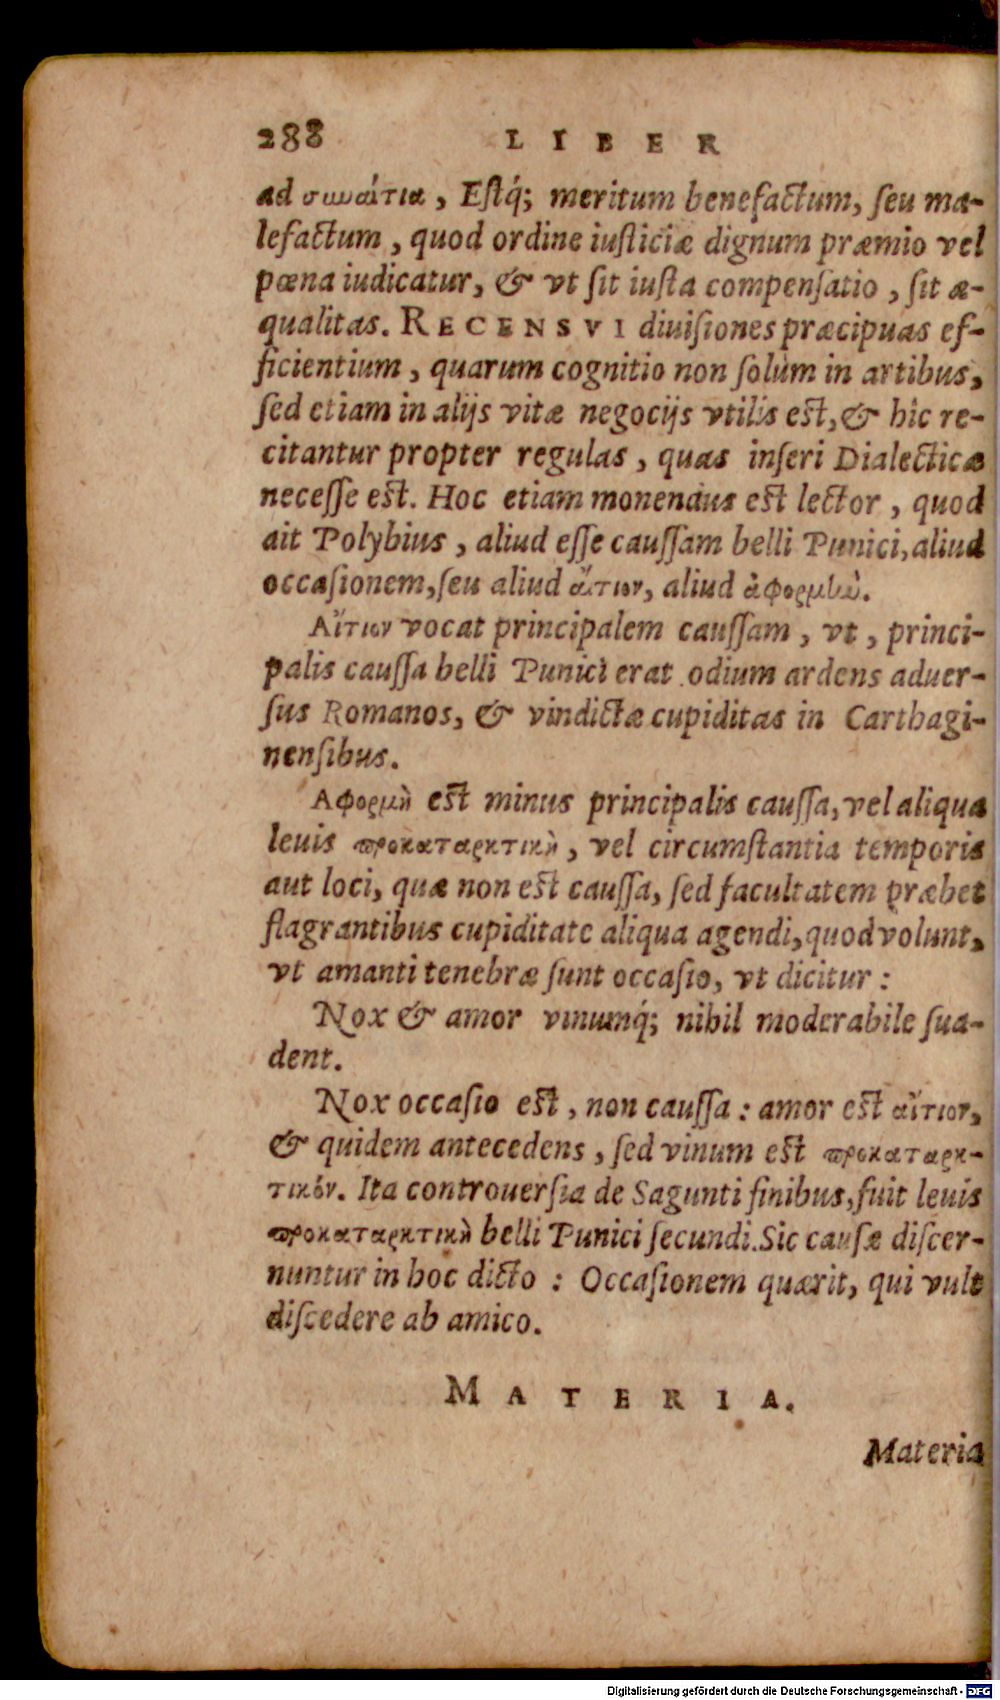 288 LIBER
ad συναίτια, Estq́; meritum benefactum, ſeu ma-
lefactum, quod ordine iuſticiæ dignum præmio vel
pœna iudicatur, & vt ſit iuſta compenſatio, ſit æ-
qualitas. RECENSVI diuiſiones præcipuas ef-
ficientium, quarum cognitio non ſolùm in artibus,
ſed etiam in alijs vitæ negocijs vtilis eſt, & hîc re-
citantur propter regulas, quas inſeri Dialecticæ
neceſſe eſt. Hoc etiam monendus eſt lector, quod
ait Polybius, aliud eſſe cauſſam belli Punici, aliud
occaſionem, ſeu aliud αἴτιον, aliud ἀφορμὴν.
Αἴτιον vocat principalem cauſſam, vt, princi-
palis cauſſa belli Punici erat odium ardens aduer-
ſus Romanos, & vindictæ cupiditas in Carthagi-
nenſibus.
Αφορμὴ eſt minus principalis cauſſa, vel aliqua
leuis προκαταρκτικὴ, vel circumſtantia temporis
aut loci, quæ non eſt cauſſa, ſed facultatem præbet
flagrantibus cupiditate aliqua agendi, quod volunt,
vt amanti tenebræ ſunt occaſio, vt dicitur:
Nox & amor vinumq́; nihil moderabile ſua-
dent.
Nox occaſio eſt, non cauſſa: amor eſt αἴτιον,
& quidem antecedens, ſed vinum eſt προκαταρκ-
τικόν. Ita controuerſia de Sagunti finibus, fuit leuis
προκαταρκτικὴ belli Punici ſecundi. Sic cauſæ diſcer-
nuntur in hoc dicto: Occaſionem quærit, qui vult
diſcedere ab amico.
MATERIA.
Materia
Digitalisierung gefördert durch die Deutsche Forschungsgemeinschaft - DFG